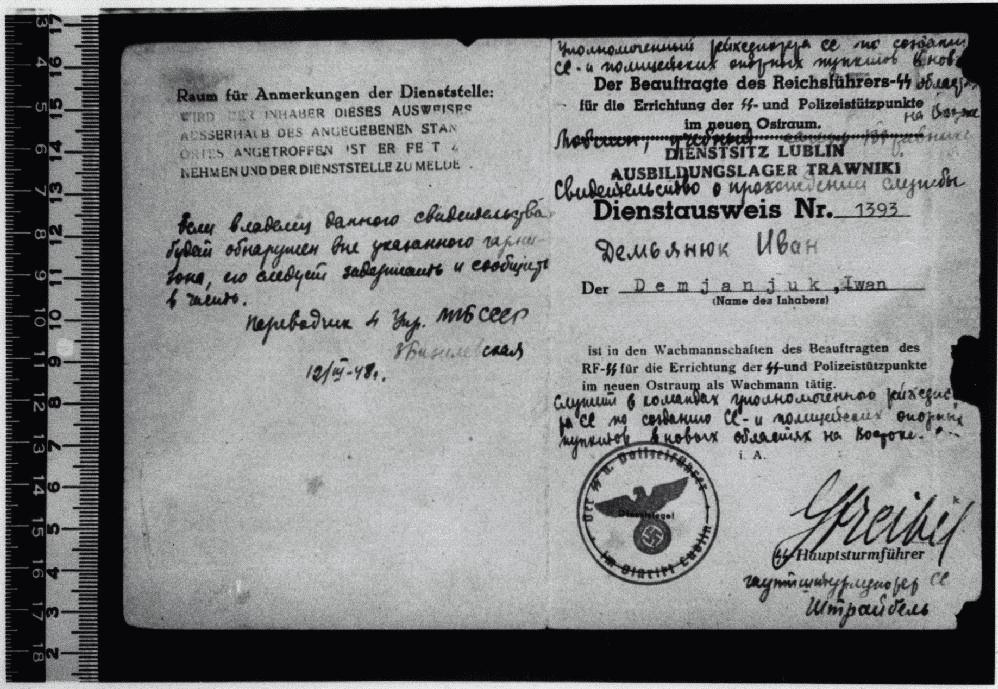 Raum für Anmerkungen der Dienststelle:
WIRD DER INHABER DIESES AUSWEISES
AUSSERHALB DES ANGEGEBENEN STAN
ORTES ANGETROFFEN IST ER FE T
NEHMEN UND DER DIENSTSTELLE ZU MELDE
Если владелец данного свидетельства
будет обнаружен вне указанного гарни-
зона, его следует задержать и сообщить
в часть.
Переводчик 4 Упр. МГБ СССР
12/III-48г.
Уполномоченный рейхсфюрера СС по созданию
СС-и полицейских опорных пунктов в новых
Der Beauftragte des Reichsführers-SS областях
für die Errichtung der SS- und Polizeistützpunkte
im neuen Ostraum. на Востоке
DIENSTSITZ LUBLIN
AUSBILDUNGSLAGER TRAWNIKI
Свидетельство о прохождении службы
Dienstausweis Nr. 1393
Демьянюк Иван
Der Demjanjuk, Iwan
(Name des Inhabers)
ist in den Wachmannschaften des Beauftragten des
RF-SS für die Errichtung der SS-und Polizeistützpunkte
im neuen Ostraum als Wachmann tätig.
Служит в командах уполномоченного рейхсфюре-
ра СС по созданию СС-и полицейских опорных
пунктов в новых областях на Востоке.
i. A.
Der SS u. Polizeiführer
im Distrikt Lublin
Dienstsiegel
Streibel
SS Hauptsturmführer
гауптштурмфюрер СС
Штрайбель
3 4 5 6 7 8 9 10 11 12 13 14 15 16 17 18
17 16 15 14 13 12 11 10 9 8 7 6 5 4 3 2